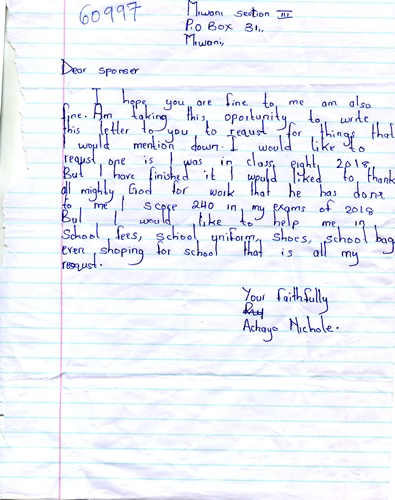 60997
Miwani section III
P.o Box 31,
Miwani,
Dear sponser
I hope you are fine to me am also
fine. Am taking this oportunity to write
this letter to you to requst for things that
I would mention down. I would like to
requst one is I was in class eight 2018
But I have finished it I would liked to thank
all mighty God for work that he has done
to me I score 240 in my exams of 2018
But I would like to help me in
School fees, school uniform, shoes, school bag
even shoping for school that is all my
requst.
Your faithfully
Achayo Nichole.